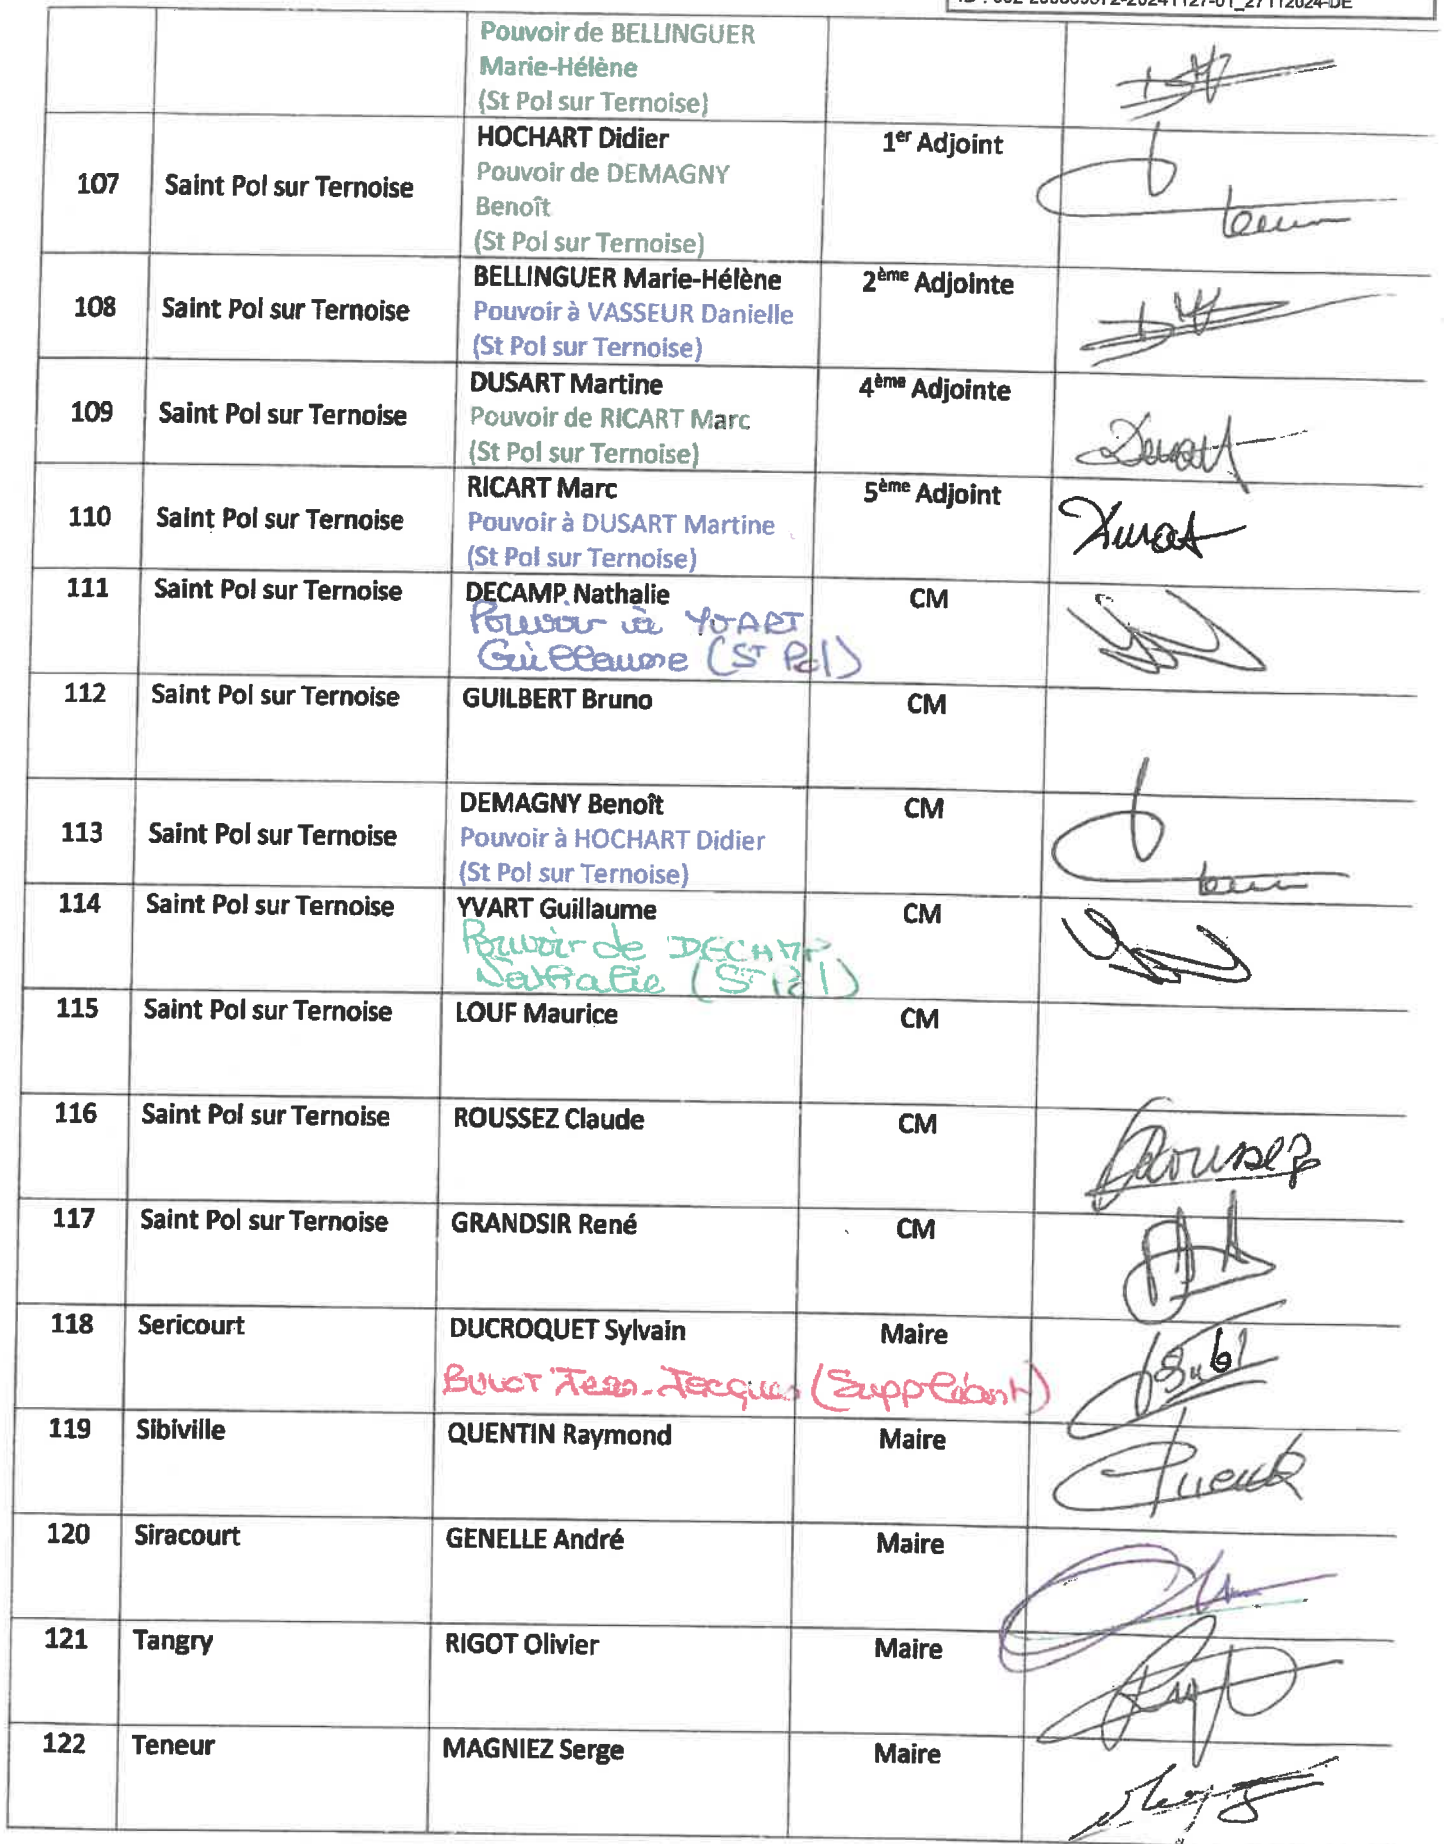 Pouvoir de BELLINGUER
Marie-Hélène
(St Pol sur Ternoise)
107 Saint Pol sur Ternoise HOCHART Didier 1er Adjoint
Pouvoir de DEMAGNY
Benoît
(St Pol sur Ternoise)
108 Saint Pol sur Ternoise BELLINGUER Marie-Hélène 2ème Adjointe
Pouvoir à VASSEUR Danielle
(St Pol sur Ternoise)
109 Saint Pol sur Ternoise DUSART Martine 4ème Adjointe
Pouvoir de RICART Marc
(St Pol sur Ternoise)
110 Saint Pol sur Ternoise RICART Marc 5ème Adjoint
Pouvoir à DUSART Martine
(St Pol sur Ternoise)
111 Saint Pol sur Ternoise DECAMP Nathalie CM
Pouvoir à YVART
Guillaume (St Pol)
112 Saint Pol sur Ternoise GUILBERT Bruno CM
113 Saint Pol sur Ternoise DEMAGNY Benoît CM
Pouvoir à HOCHART Didier
(St Pol sur Ternoise)
114 Saint Pol sur Ternoise YVART Guillaume CM
Pouvoir de DECAMP
Nathalie (St Pol)
115 Saint Pol sur Ternoise LOUF Maurice CM
116 Saint Pol sur Ternoise ROUSSEZ Claude CM
117 Saint Pol sur Ternoise GRANDSIR René CM
118 Sericourt DUCROQUET Sylvain Maire
Jean-Jacques (Suppléant)
119 Sibiville QUENTIN Raymond Maire
120 Siracourt GENELLE André Maire
121 Tangry RIGOT Olivier Maire
122 Teneur MAGNIEZ Serge Maire